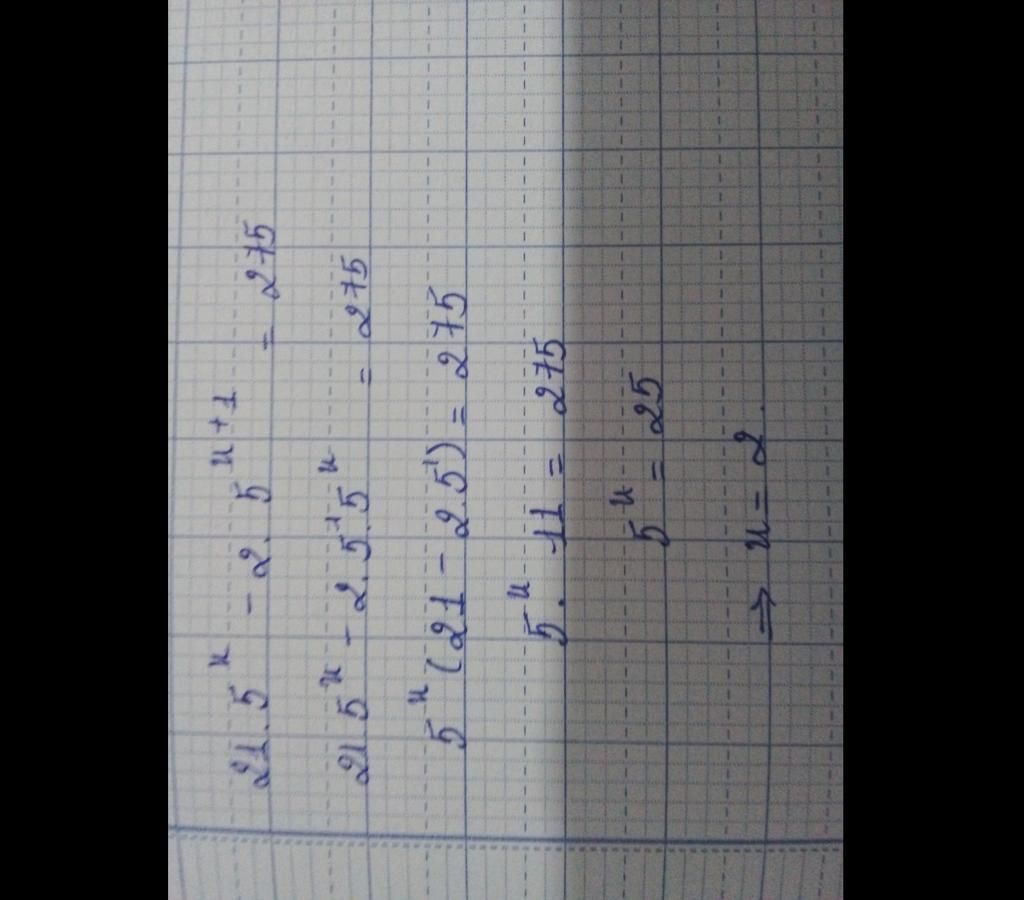 21.5ⁿ - 2.5ⁿ⁺¹ = 275
21.5ⁿ - 2.5¹.5ⁿ = 275
5ⁿ (21 - 2.5¹) = 275
5ⁿ. 11 = 275
5ⁿ = 25
⇒ n = 2.